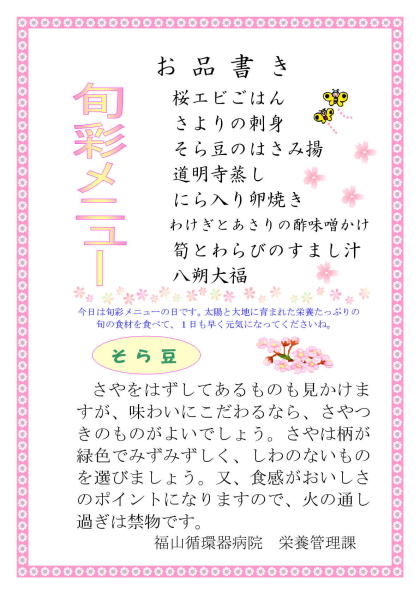 お品書き
旬彩メニュー
桜エビごはん
さよりの刺身
そら豆のはさみ揚
道明寺蒸し
にら入り卵焼き
わけぎとあさりの酢味噌かけ
筍とわらびのすまし汁
八朔大福
今日は旬彩メニューの日です。太陽と大地に育まれた栄養たっぷりの
旬の食材を食べて、1日も早く元気になってくださいね。
そら豆
さやをはずしてあるものも見かけま
すが、味わいにこだわるなら、さやつ
きのものがよいでしょう。さやは柄が
緑色でみずみずしく、しわのないもの
を選びましょう。又、食感がおいしさ
のポイントになりますので、火の通し
過ぎは禁物です。
福山循環器病院　栄養管理課